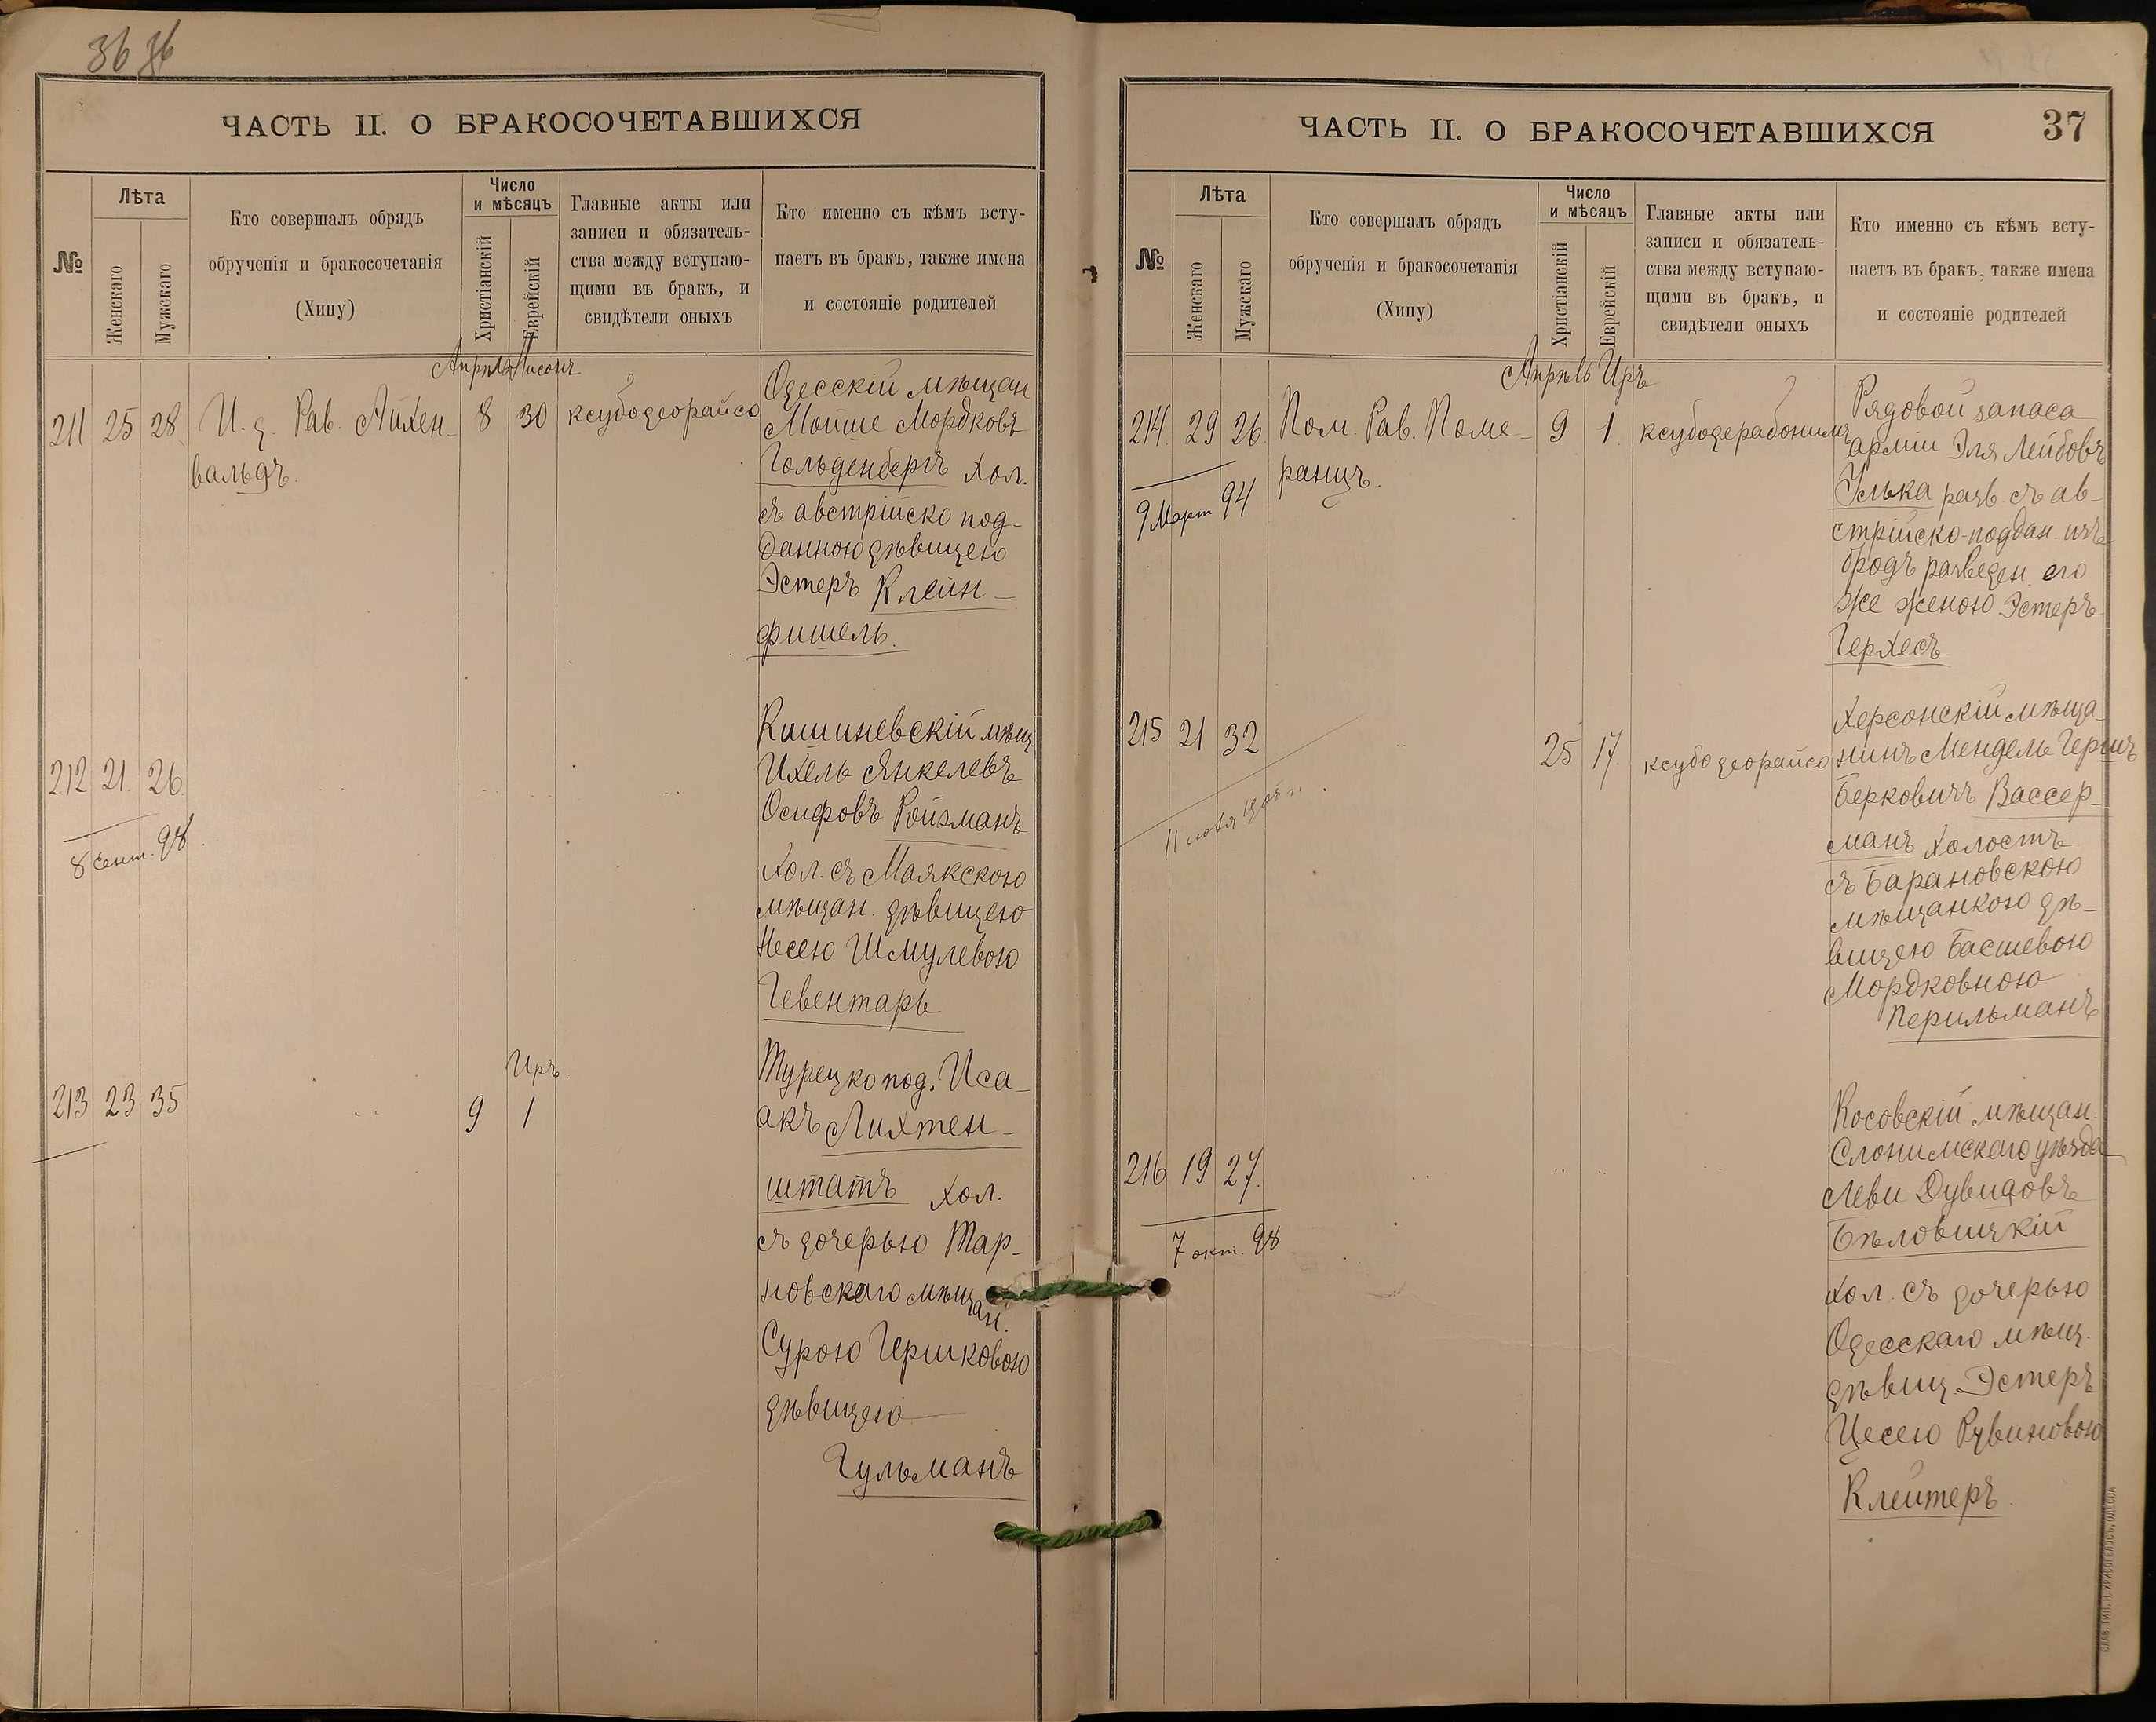 36 36
ЧАСТЬ II. О БРАКОСОЧЕТАВШИХСЯ
№
Лѣта
Женскаго
Мужскаго
Кто совершалъ обрядъ
обрученія и бракосочетанія
(Хипу)
Число
и мѣсяцъ
Христіанскій
Еврейскій
Главные акты или
записи и обязатель-
ства между вступаю-
щими въ бракъ, и
свидѣтели оныхъ
Кто именно съ кѣмъ всту-
паетъ въ бракъ, также имена
и состояніе родителей
Апрель Нисонъ
211 25 28 И. д. Рав. Айхен-
вальдъ.
8 30 ксубодеорайсо
Одесскій мѣщан
Мойше Мордковъ
Гольденбергъ хол.
съ австрійско под-
данною дѣвицею
Эстеръ Клейн-
фишель.
212 21 26
8 сент. 98
Кишиневскій мѣщ.
Ихель Янкелевъ
Осифовъ Ройзманъ
хол. съ Маякскою
мѣщан. дѣвицею
Несею Шмулевою
Гевентарь
Иръ
213 23 35 9 1
Турецко под. Иса-
акъ Лихтен-
штатъ хол.
съ дочерью Тар-
новскаго мѣщан.
Сурою Гершковою
дѣвицею
Гульманъ
ЧАСТЬ II. О БРАКОСОЧЕТАВШИХСЯ
37
№
Лѣта
Женскаго
Мужскаго
Кто совершалъ обрядъ
обрученія и бракосочетанія
(Хипу)
Число
и мѣсяцъ
Христіанскій
Еврейскій
Главные акты или
записи и обязатель-
ства между вступаю-
щими въ бракъ, и
свидѣтели оныхъ
Кто именно съ кѣмъ всту-
паетъ въ бракъ, также имена
и состояніе родителей
Апрель Иръ
214 29 26 Пом. Рав. Поме-
ранцъ.
9 Март 94
9 1 ксубодерабонимъ
Рядовой запаса
арміи Эля Лейбовъ
Улька разв. съ ав-
стрійско-поддан. изъ
бродъ разведен. его
же женою Эстеръ
Герхесъ
215 21 32
25 17 ксубодеорайсо
Херсонскій мѣща-
нинъ Мендель Гершъ
Берковичъ Вассер-
манъ холостъ
съ Барановскою
мѣщанкою дѣ-
вицею Басшевою
Мордковною
Перильманъ
216 19 27
7 окт. 98
Косовскій мѣщан.
Слонимскаго уѣзда
Леви Дувидовъ
Бѣловицкій
хол. съ дочерью
Одесскаго мѣщ.
дѣвиц. Эстеръ
Цесею Рувиновою
Клейтеръ
СЛАВ. ТИП. Н. ХРИСОГЕЛОСЪ, ОДЕССА